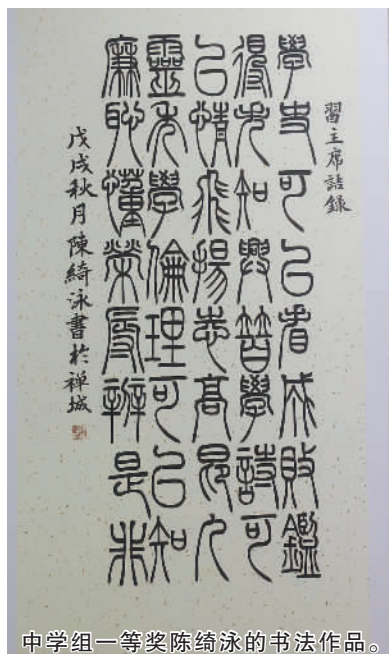 習主席語錄
學史可以看成敗鑑
得失知興替學詩可
以情飛揚志高昂人
靈秀學倫理可以知
廉恥懂榮辱辨是非
戊戌秋月陳綺泳書於禅城
中学组一等奖陈绮泳的书法作品。